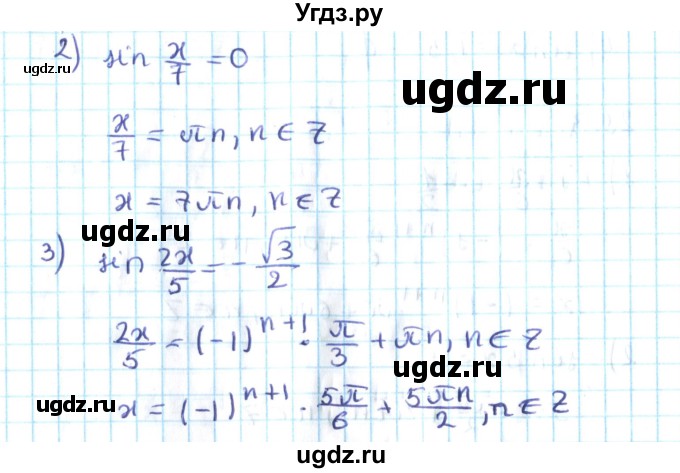 Угдз.ру
2) sin x/7 = 0
ugdz.ru
ugdz.ru
x/7 = πn, n ∈ Z
ugdz.ru
x = 7πn, n ∈ Z
ugdz.ru
3) sin 2x/5 = -√3/2
2x/5 = (-1)^(n+1) · π/3 + πn, n ∈ Z
ugdz.ru
ugdz.ru
x = (-1)^(n+1) · 5π/6 + 5πn/2, n ∈ Z
ugdz.ru
ugdz.ru